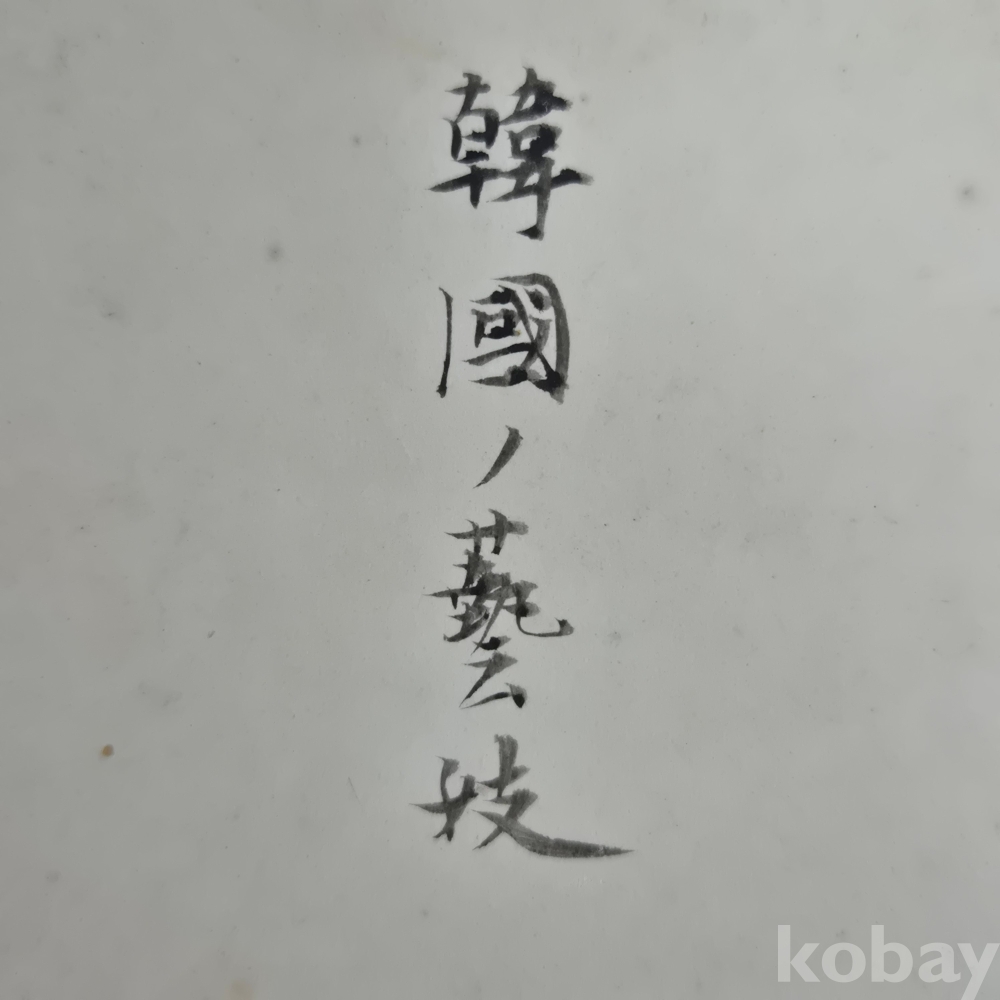 韓國ノ藝妓
kobay